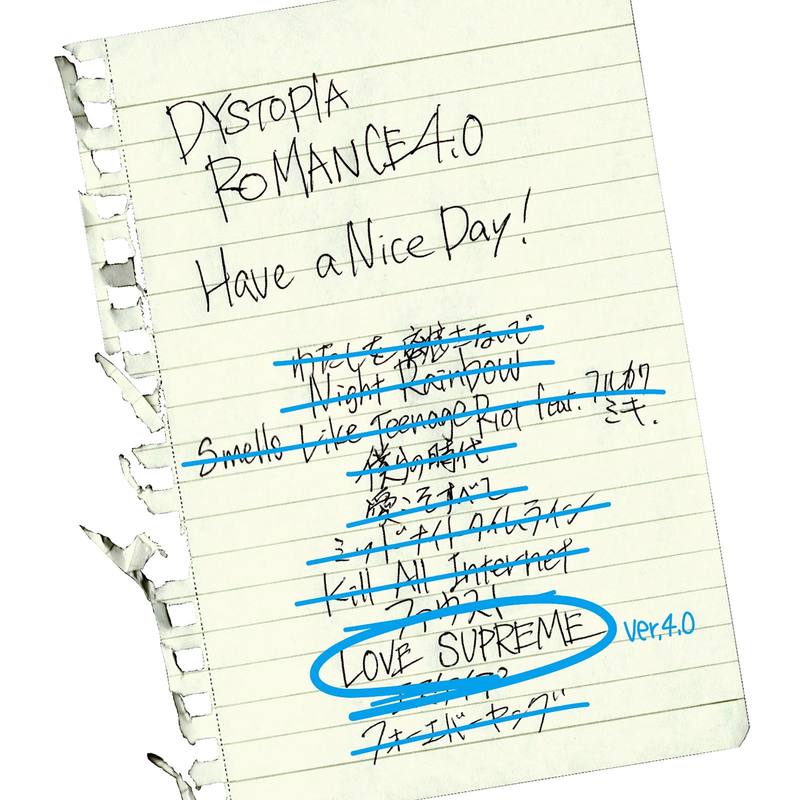 DYSTOPIA
ROMANCE 4.0
Have a Nice Day!
わたしを離さないで
Night Rainbow
Smells Like Teenage Riot feat. フルカワ
ミキ.
僕らの時代
愛こそすべて
ミッドナイトタイムライン
Kill All Internet
ファウスト
LOVE SUPREME
ver.4.0
フォーエバーヤング